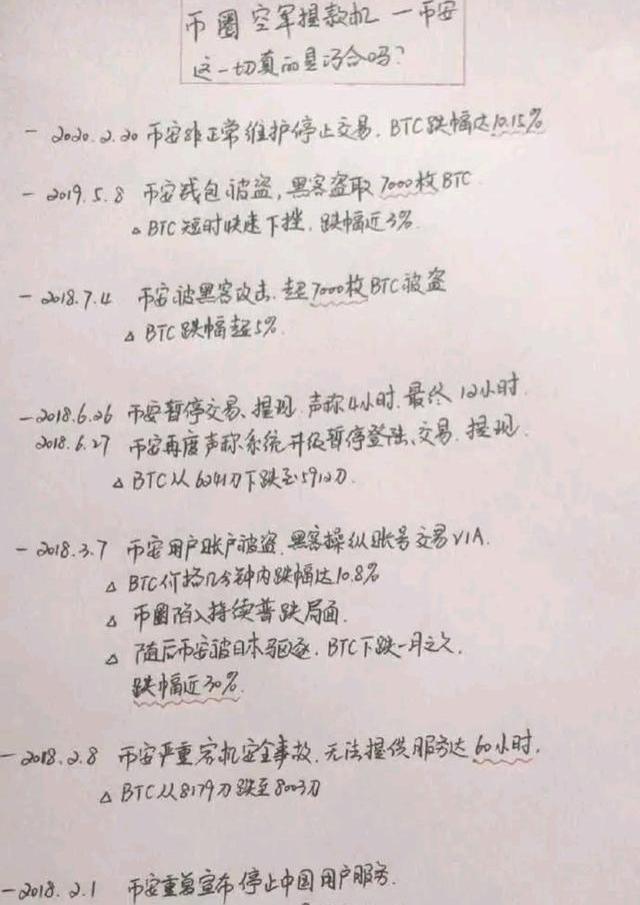 币圈空军提款机一币安
这一切真的是巧合吗?
- 2020.2.20 币安非正常维护停止交易, BTC跌幅达10.15%
- 2019.5.8 币安钱包被盗, 黑客盗取7000枚BTC
△ BTC短时快速下挫, 跌幅近3%.
- 2018.7.4 币安被黑客攻击, 超7000枚BTC被盗
△ BTC跌幅超5%.
- 2018.6.26 币安暂停交易、提现. 声称4小时. 最终12小时.
2018.6.27 币安再度声称系统升级暂停登陆、交易. 提现.
△ BTC从6241刀下跌至5912刀.
- 2018.3.7 币安用户账户被盗, 黑客操纵账号交易VIA.
△ BTC价格几分钟内跌幅达10.8%
△ 币圈陷入持续普跌局面.
△ 随后币安被日本驱逐, BTC下跌一月之久,
跌幅近30%.
- 2018.2.8 币安严重宕机安全事故, 无法提供服务达60小时.
△ BTC从8179刀跌至8003刀
- 2018.2.1 币安重复宣布停止中国用户服务.